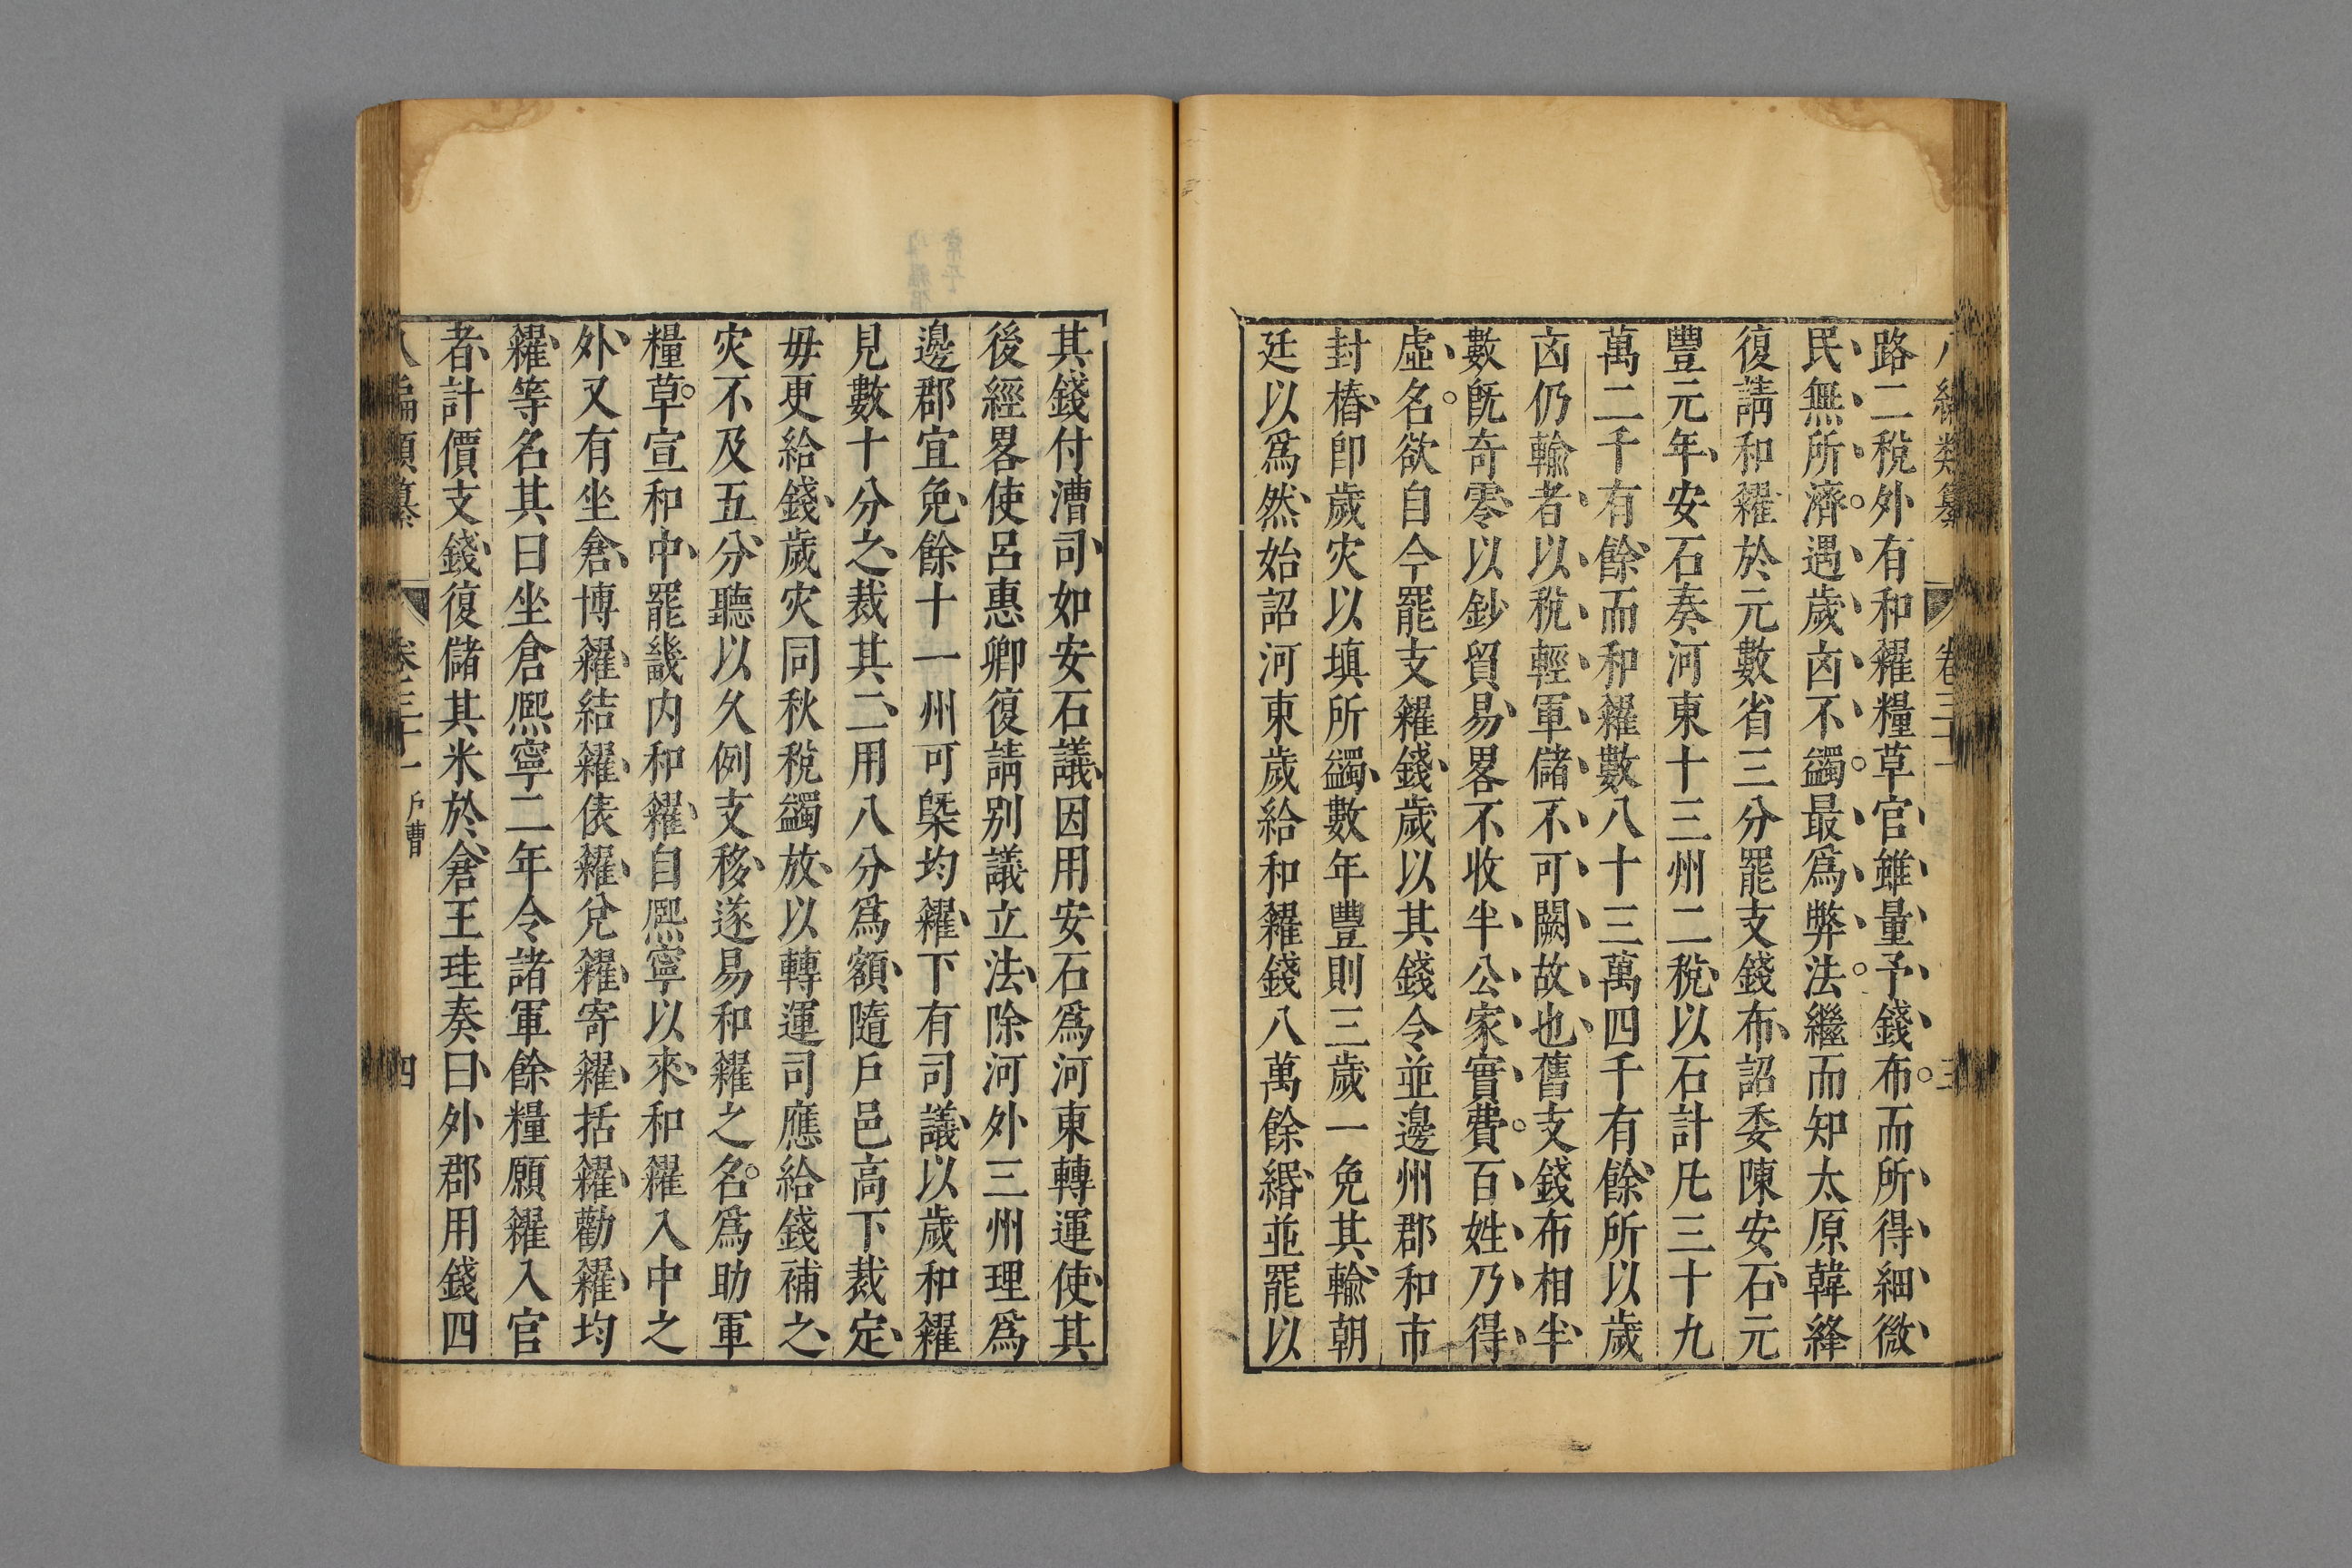 路二稅外有和糴糧草官雖量予錢布而所得細微
民無所濟遇歲㐫不蠲最爲弊法繼而知太原韓絳
復請和糴於元數省三分罷支錢布詔委陳安石元
豐元年安石奏河東十三州二稅以石計凡三十九
萬二千有餘而和糴數八十三萬四千有餘所以歲
㐫仍輸者以稅輕軍儲不可闕故也舊支錢布相半
數旣奇零以鈔貿易畧不收半公家實費百姓乃得
虛名欲自今罷支糴錢歲以其錢令並邊州郡和市
封樁卽歲灾以填所蠲數年豐則三歲一免其輸朝
廷以爲然始詔河東歲給和糴錢八萬餘緡並罷以
其錢付漕司如安石議因用安石爲河東轉運使其
後經畧使呂惠卿復請別議立法除河外三州理爲
邊郡宜免餘十一州可槩均糴下有司議以歲和糴
見數十分之裁其二用八分爲額隨戶邑高下裁定
毋更給錢歲灾同秋稅蠲放以轉運司應給錢補之
灾不及五分聽以久例支移遂易和糴之名爲助軍
糧草宣和中罷畿内和糴自熙寧以來和糴入中之
外又有坐倉博糴結糴俵糴兌糴寄糴括糴勸糴均
糴等名其曰坐倉熙寧二年令諸軍餘糧願糴入官
者計價支錢復儲其米於倉王珪奏曰外郡用錢四
八編類纂 卷三十一 戶曹 四